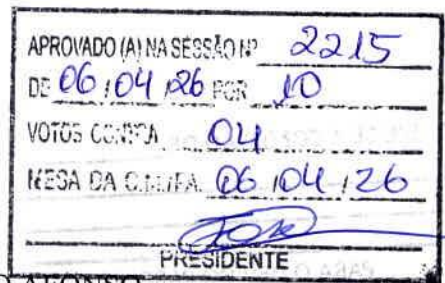 APROVADO (A) NA SESSÃO Nº 2215
DE 06/04/26 POR 10
VOTOS CONTRA 04
MESA DA 06/04/26
PRESIDENTE
AFONSO